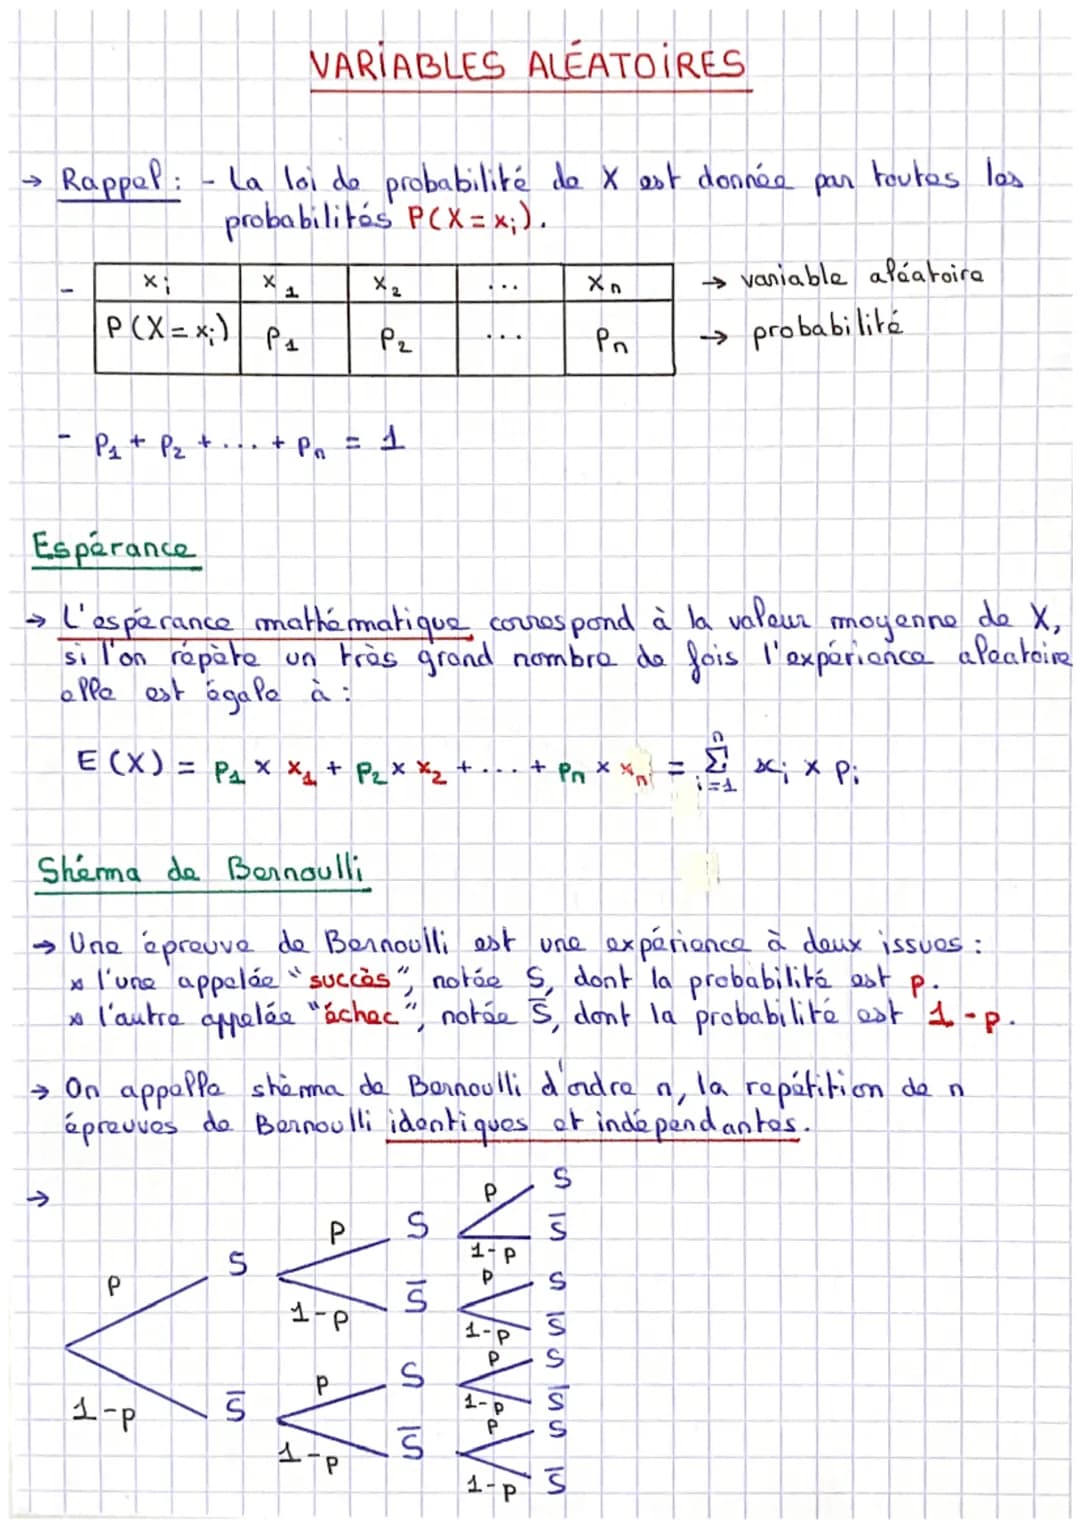 VARIABLES ALÉATOIRES
→ Rappel : - La loi de probabilité de X est donnée par toutes les
probabilités P(X = xi).
- xi x1 x2 ... xn → variable aléatoire
P(X = xi) P1 P2 ... Pn → probabilité
- P1 + P2 + ... + Pn = 1
Espérance
→ L'espérance mathématique correspond à la valeur moyenne de X,
si l'on répète un très grand nombre de fois l'expérience aleatoire
elle est égale à :
E(X) = P1 × x1 + P2 × x2 + ... + Pn × xn = n∑i=1 xi × pi
Shéma de Bernoulli
→ Une épreuve de Bernoulli est une expérience à deux issues :
× l'une appelée "succès", notée S, dont la probabilité est p.
× l'autre appelée "échec", notée S̅, dont la probabilité est 1-p.
→ On appelle shèma de Bernoulli d'ordre n, la repétition de n
épreuves de Bernoulli identiques et indépendantes.
→
P S
P S 1-P S̅
P S P S
1-P S̅ 1-P S̅
P S P S
1-P S̅ 1-P S̅
1-P S̅ P S
1-P S̅